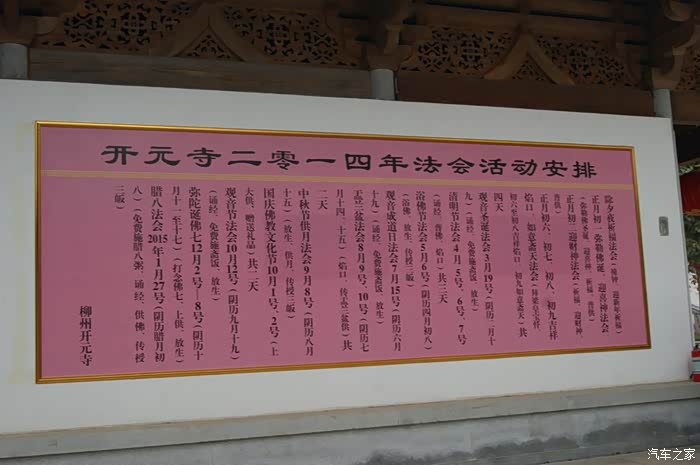 开元寺二零一四年法会活动安排
除夕夜祈福法会（撞钟、迎新年祈福）
正月初一弥勒佛诞、迎喜神法会
（弥勒佛圣诞、迎喜神、祈福、普供）
正月初二迎财神法会（祈福、迎财神、
普供）
正月初六、初七、初八、初九吉祥
焰口、如意斋天法会
初六至初八吉祥焰口、初九如意斋天）共
四天
观音圣诞法会3月19号（阴历二月十
九）（诵经、免费施斋饭、放生）
清明节法会4月5号、6号、7号
（诵经、普佛、焰口）共三天
浴佛节法会5月6号（阴历四月初八）
（浴佛、放生、传授三皈）
观音成道日法会7月15号（阴历六月
十九）（诵经、免费施斋饭、放生）
盂兰盆法会8月9号、10号（阴历七
月十四、十五）（焰口、传盂兰盆供）共
二天
中秋节供月法会9月8号（阴历八月
十五）（放生、供月、传授三皈）
国庆佛教文化节10月1号、2号（上
大供、赠送礼品）共二天
观音节法会10月12号（阴历九月十九）
（诵经、免费施斋饭、放生）
弥陀诞佛七12月2号—8号（阴历十
月十一至十七）（打念佛七、上供、放生）
腊八法会2015年1月27号（阴历腊月初
八）（免费施腊八粥、诵经、供佛、传授
三皈）
柳州开元寺
汽车之家